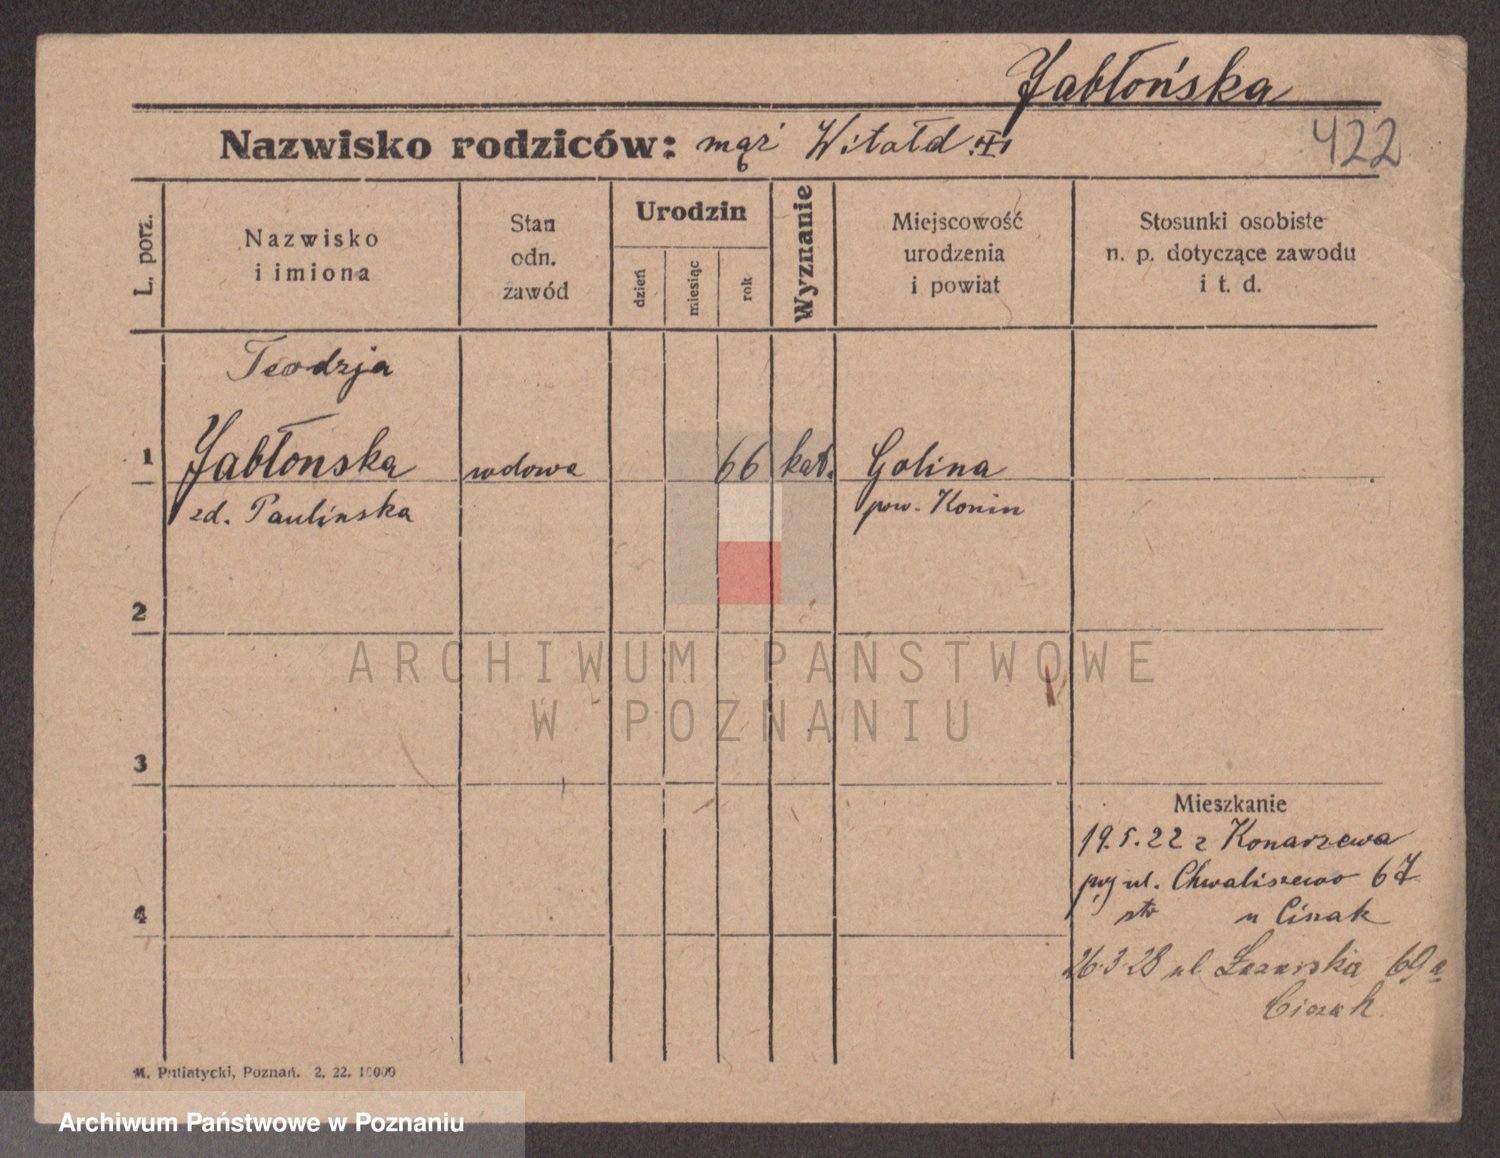 Jabłońska
Nazwisko rodziców: mąż Witołd
422
L. porz.
Nazwisko
i imiona
Stan
odn.
zawód
Urodzin
dzień
miesiąc
rok
Wyznanie
Miejscowość
urodzenia
i powiat
Stosunki osobiste
n. p. dotyczące zawodu
i t. d.
Teodzja
1 Jabłonska wdowa 66 kat. Golina
zd. Paulinska pow. Konin
2
ARCHIWUM PAŃSTWOWE
W POZNANIU
3
Mieszkanie
19.5.22 z Konarzewa
ul. Chwaliszewo 67
4
u Cisak
26.3.28 ul. 69a
M. Putiatycki, Poznań. 2. 22. 10000
Archiwum Państwowe w Poznaniu